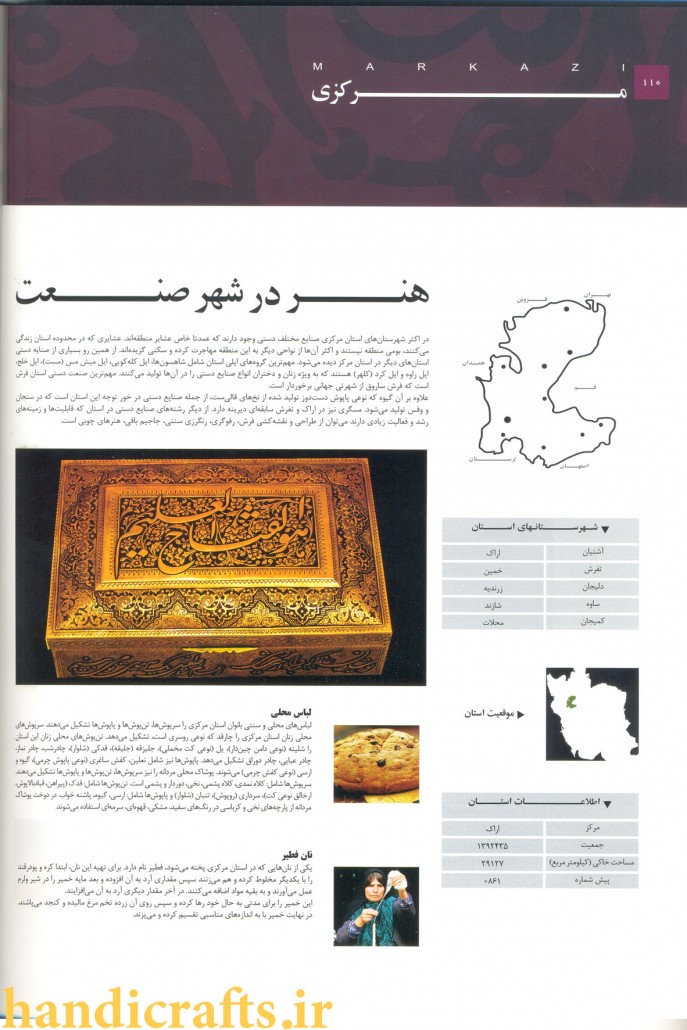 MARKAZI
مرکزی
۱۱۰
هنر در شهر صنعت
در اکثر شهرستان‌های استان مرکزی صنایع مختلف دستی وجود دارند که عمدتا خاص عشایر منطقه‌اند. عشایری که در محدوده استان زندگی
می‌کنند، بومی منطقه نیستند و اکثر آن‌ها از نواحی دیگر به این منطقه مهاجرت کرده و سکنی گزیده‌اند. از همین رو بسیاری از صنایه دستی
استان‌های دیگر در استان مرکز دیده می‌شود. مهم‌ترین گروه‌های ایلی استان شامل شاهسون‌ها، ایل کله‌کویی، ایل میش مس (مست)، ایل خلج،
ایل راوه و ایل کرد (کلهر) هستند که به ویژه زنان و دختران انواع صنایع دستی را در آن‌ها تولید می‌کنند. مهم‌ترین صنعت دستی استان فرش
است که فرش ساروق از شهرتی جهانی برخوردار است.
علاوه بر آن گیوه که نوعی پاپوش دست‌دوز تولید شده از نخ‌های قالی‌ست، از جمله صنایع دستی در خور توجه این استان است که در سنجان
و وفس تولید می‌شود. مسگری نیز در اراک و تفرش سابقه‌ای دیرینه دارد. از دیگر رشته‌های صنایع دستی در استان که قابلیت‌ها و زمینه‌های
رشد و فعالیت زیادی دارند می‌توان از طراحی و نقشه‌کشی فرش، رفوگری، رنگرزی سنتی، جاجیم بافی، هنرهای چوبی است.
تهران
قزوین
همدان
قم
لرستان
اصفهان
شهرستانهای استان
آشتیان اراک
تفرش خمین
دلیجان زرندیه
ساوه شازند
کمیجان محلات
موقعیت استان
اطلاعات استان
مرکز اراک
جمعیت ۱۳۹۲۴۳۵
مساحت خاکی (کیلومتر مربع) ۲۹۱۲۷
پیش شماره ۰۸۶۱
هو الفتاح العلیم
لباس محلی
لباس‌های محلی و سنتی بانوان استان مرکزی را سرپوش‌ها، تن‌پوش‌ها و پاپوش‌ها تشکیل می‌دهند. سرپوش‌های
محلی زنان استان مرکزی را چارقد که نوعی روسری است، تشکیل می‌دهد. تن‌پوش‌های محلی زنان این استان
را شلیته (نوعی دامن چین‌دار)، یل (نوعی کت مخملی)، جلیزقه (جلیقه)، قدکی (شلوار)، چادرشب، چادر نماز،
چادر عبایی، چادر دوراق تشکیل می‌دهد. پاپوش‌ها نیز شامل نعلین، کفش ساغری (نوعی پاپوش چرمی)، گیوه و
ارسی (نوعی کفش چرمی) می‌شوند. پوشاک محلی مردانه را نیز سرپوش‌ها، تن‌پوش‌ها و پاپوش‌ها تشکیل می‌دهند
سرپوش‌ها شامل: کلاه نمدی، کلاه پشمی، نخی، دوردار و پشمی است. تن‌پوش‌ها شامل: قدک (پیراهن، قبا،پالاپوش،
ارخالق نوعی کت)، سرداری (روپوش)، تنبان (شلوار) و پاپوش‌ها شامل: ارسی، گیوه، پاشنه خواب. در دوخت پوشاک
مردانه از پارچه‌های نخی و کرباسی در رنگ‌های سفید، مشکی، قهوه‌ای، سرمه‌ای استفاده می‌شوند.
نان فطیر
یکی از نان‌هایی که در استان مرکزی پخته می‌شود، فطیر نام دارد. برای تهیه این نان، ابتدا کره و پودرقند
را با یکدیگر مخلوط کرده و هم می‌زنند سپس مقداری آرد به آن افزوده و بعد مایه خمیر را در شیر ولرم
عمل می‌آورند و به بقیه مواد اضافه می‌کنند. در آخر مقدار دیگری آرد به آن می‌افزایند.
این خمیر را برای مدتی به حال خود رها کرده و سپس روی آن زرده تخم مرغ مالیده و کنجد می‌پاشند.
در نهایت خمیر با به اندازه‌های مناسبی تقسیم کرده و می‌پزند.
handicrafts.ir